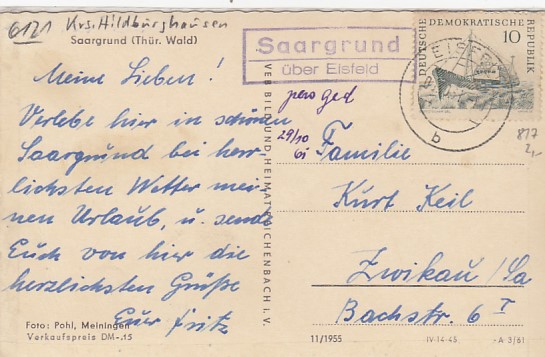 6121 Krs. Hildburghausen
Saargrund (Thür. Wald)
Meine Lieben!
Verlebe hier in schönen
Saargrund bei herr-
lichsten Wetter mei-
nen Urlaub, u. sende
Euch von hier die
herzlichsten Grüße
Euer Fritz
Foto: Pohl, Meiningen
Verkaufspreis DM -.15
VEB BILD UND HEIMAT REICHENBACH I. V.
Saargrund
über Eisfeld
DEUTSCHE DEMOKRATISCHE REPUBLIK
10
EISFELD
b
ged
29/10
61
817
2,-
Familie
Kurt Keil
Zwikau/Sa
Bachstr. 6 I
11/1955
IV-14-45
A 3/61